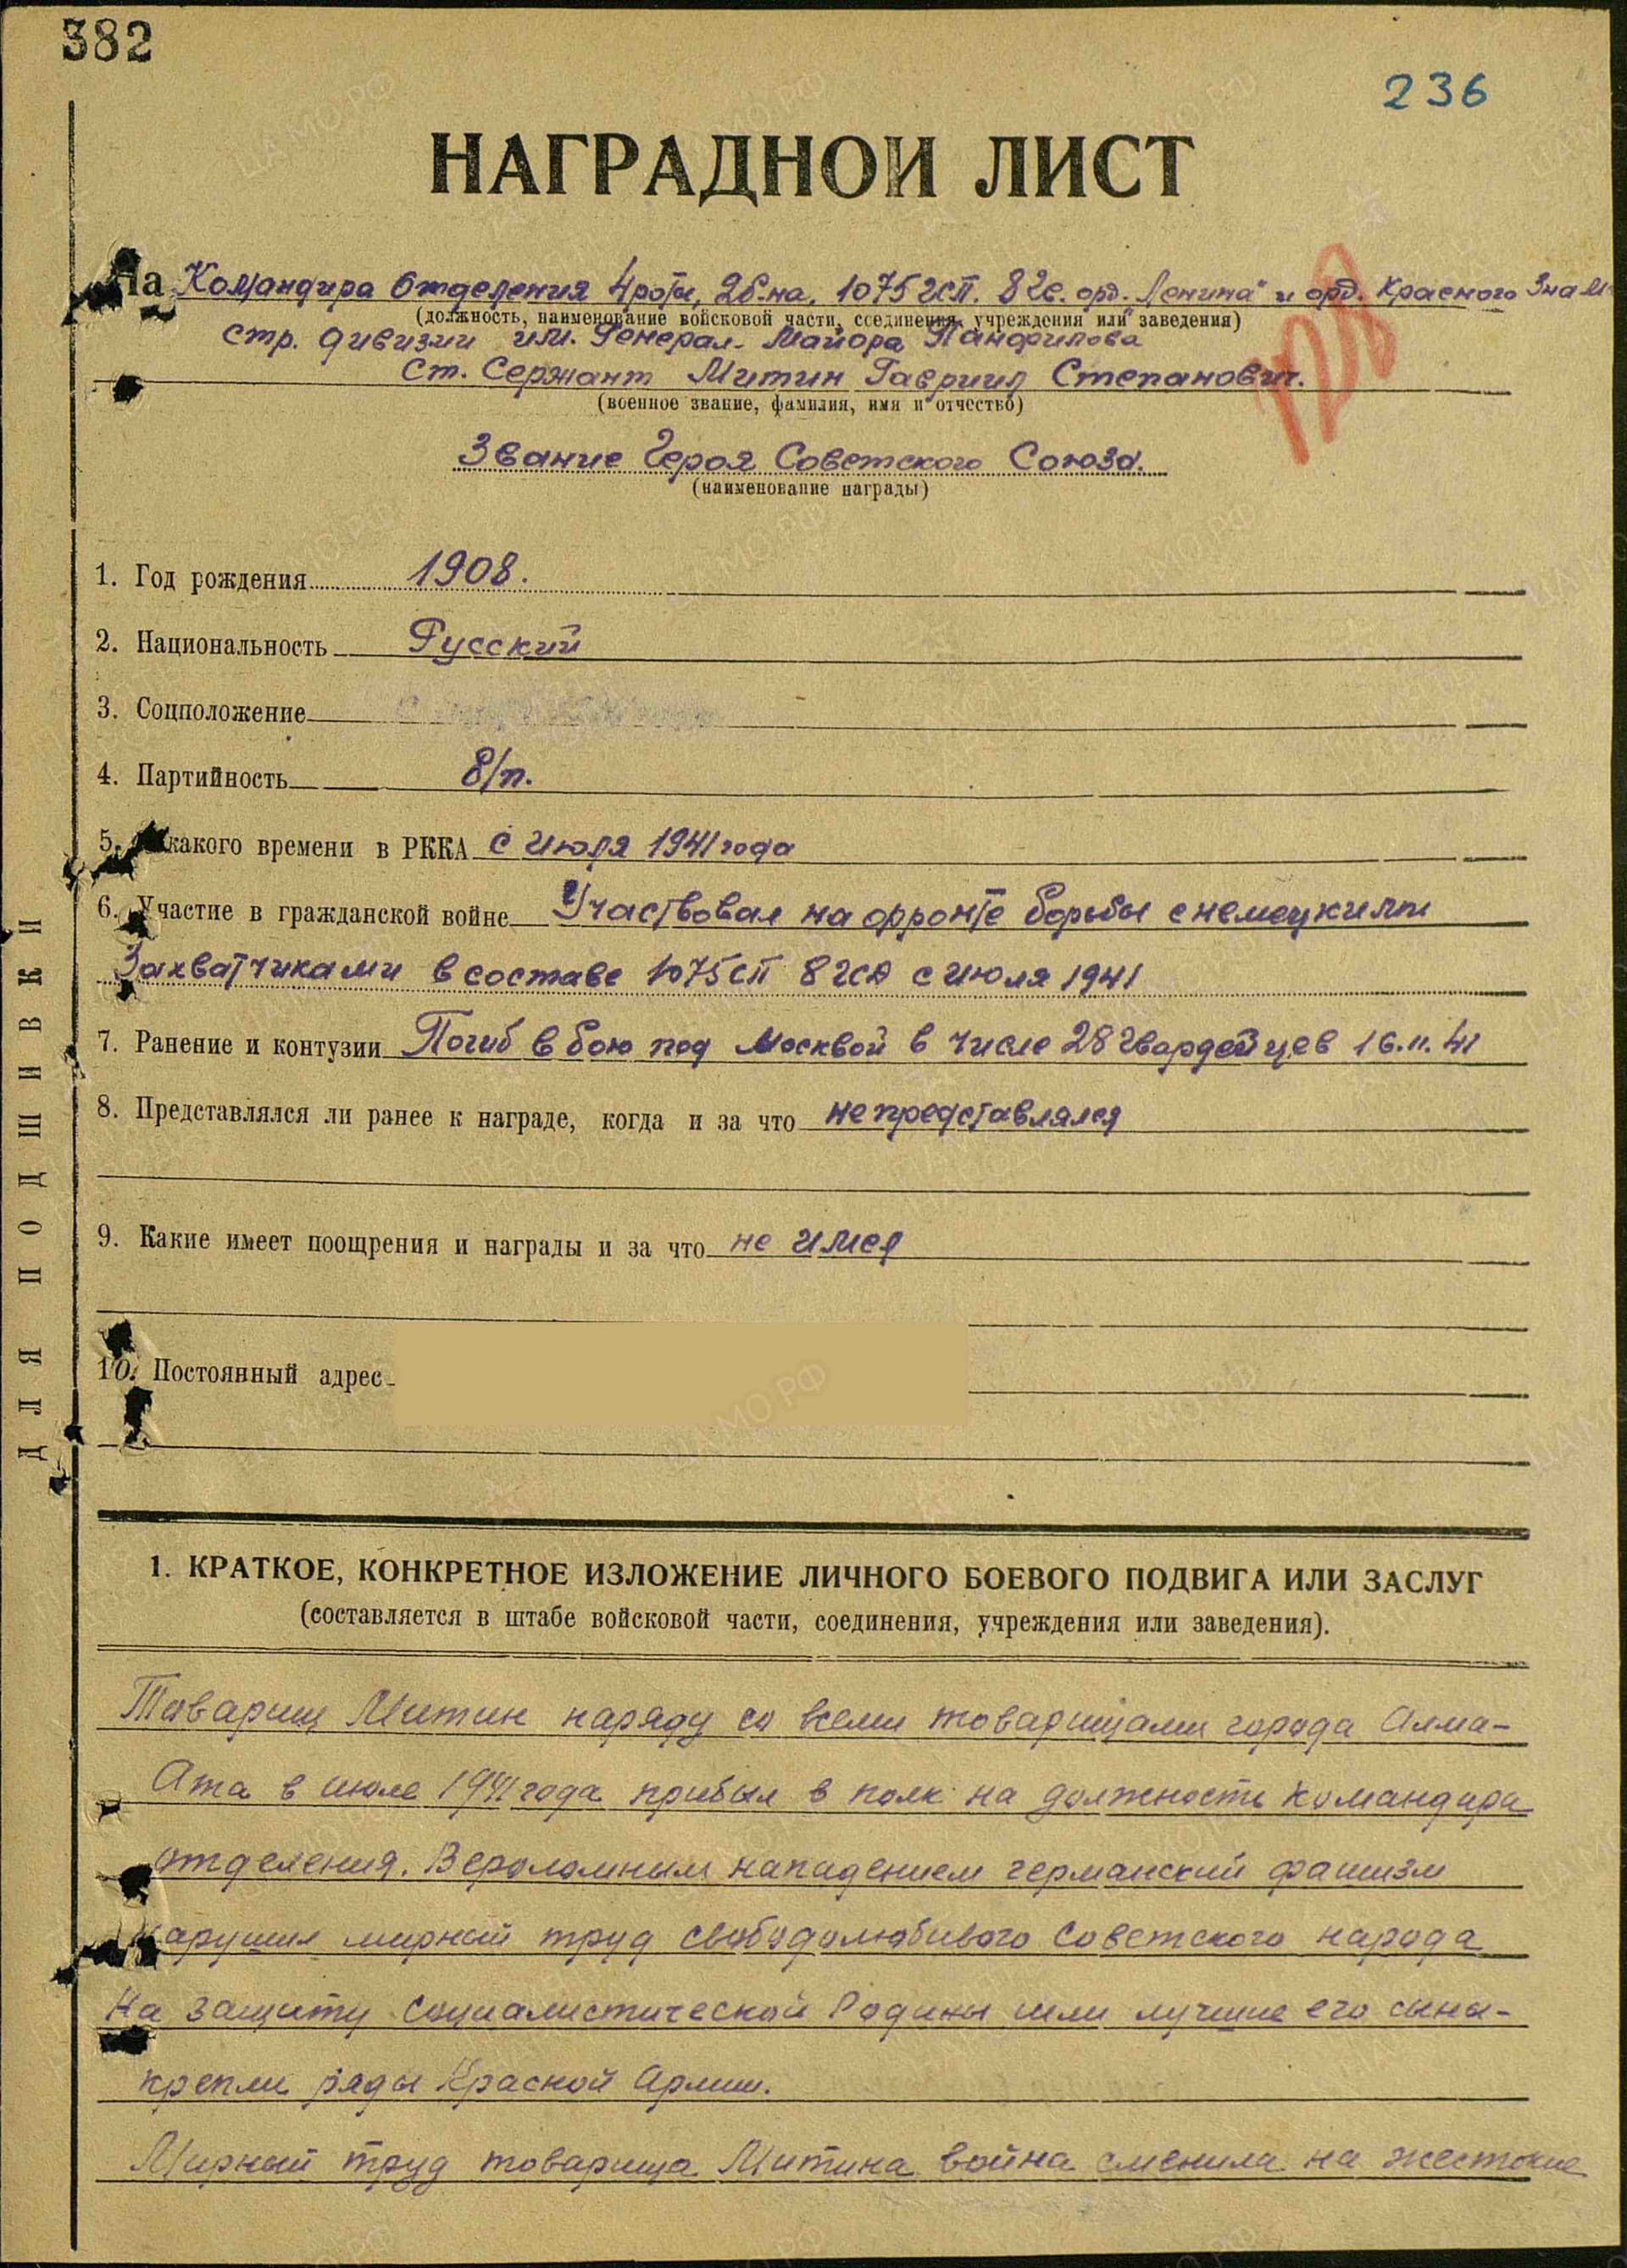 382
236
НАГРАДНОЙ ЛИСТ
На Командира Отделения 4 роты, 2 б-на, 1075 гсп. 8 гв. орд. Ленина" и орд. Красного Знам.
(должность, наименование войсковой части, соединения, учреждения или заведения)
стр. дивизии им. Генерал-Майора Панфилова
Ст. Сержант Митин Гавриил Степанович.
(военное звание, фамилия, имя и отчество)
Звание Героя Советского Союза.
(наименование награды)
1. Год рождения 1908.
2. Национальность Русский
3. Соцположение
4. Партийность б/п.
5. С какого времени в РККА с июля 1941 года
6. Участие в гражданской войне Участвовал на фронте борьбы с немецкими
Захватчиками в составе 1075 сп 8 гсд с июля 1941
7. Ранение и контузии Погиб в бою под Москвой в числе 28 гвардейцев 16.11.41
8. Представлялся ли ранее к награде, когда и за что не представлялся
9. Какие имеет поощрения и награды и за что не имел
10. Постоянный адрес
ДЛЯ ПОДШИВКИ
1. КРАТКОЕ, КОНКРЕТНОЕ ИЗЛОЖЕНИЕ ЛИЧНОГО БОЕВОГО ПОДВИГА ИЛИ ЗАСЛУГ
(составляется в штабе войсковой части, соединения, учреждения или заведения).
Товарищ Митин наряду со всеми товарищами города Алма-
Ата в июле 1941 года прибыл в полк на должность командира
отделения. Вероломным нападением германский фашизм
нарушил мирный труд свободолюбивого Советского народа
На защиту социалистической Родины шли лучшие его сыны-
крепли ряды Красной Армии.
Мирный труд товарища Митина война сменила на жестокие